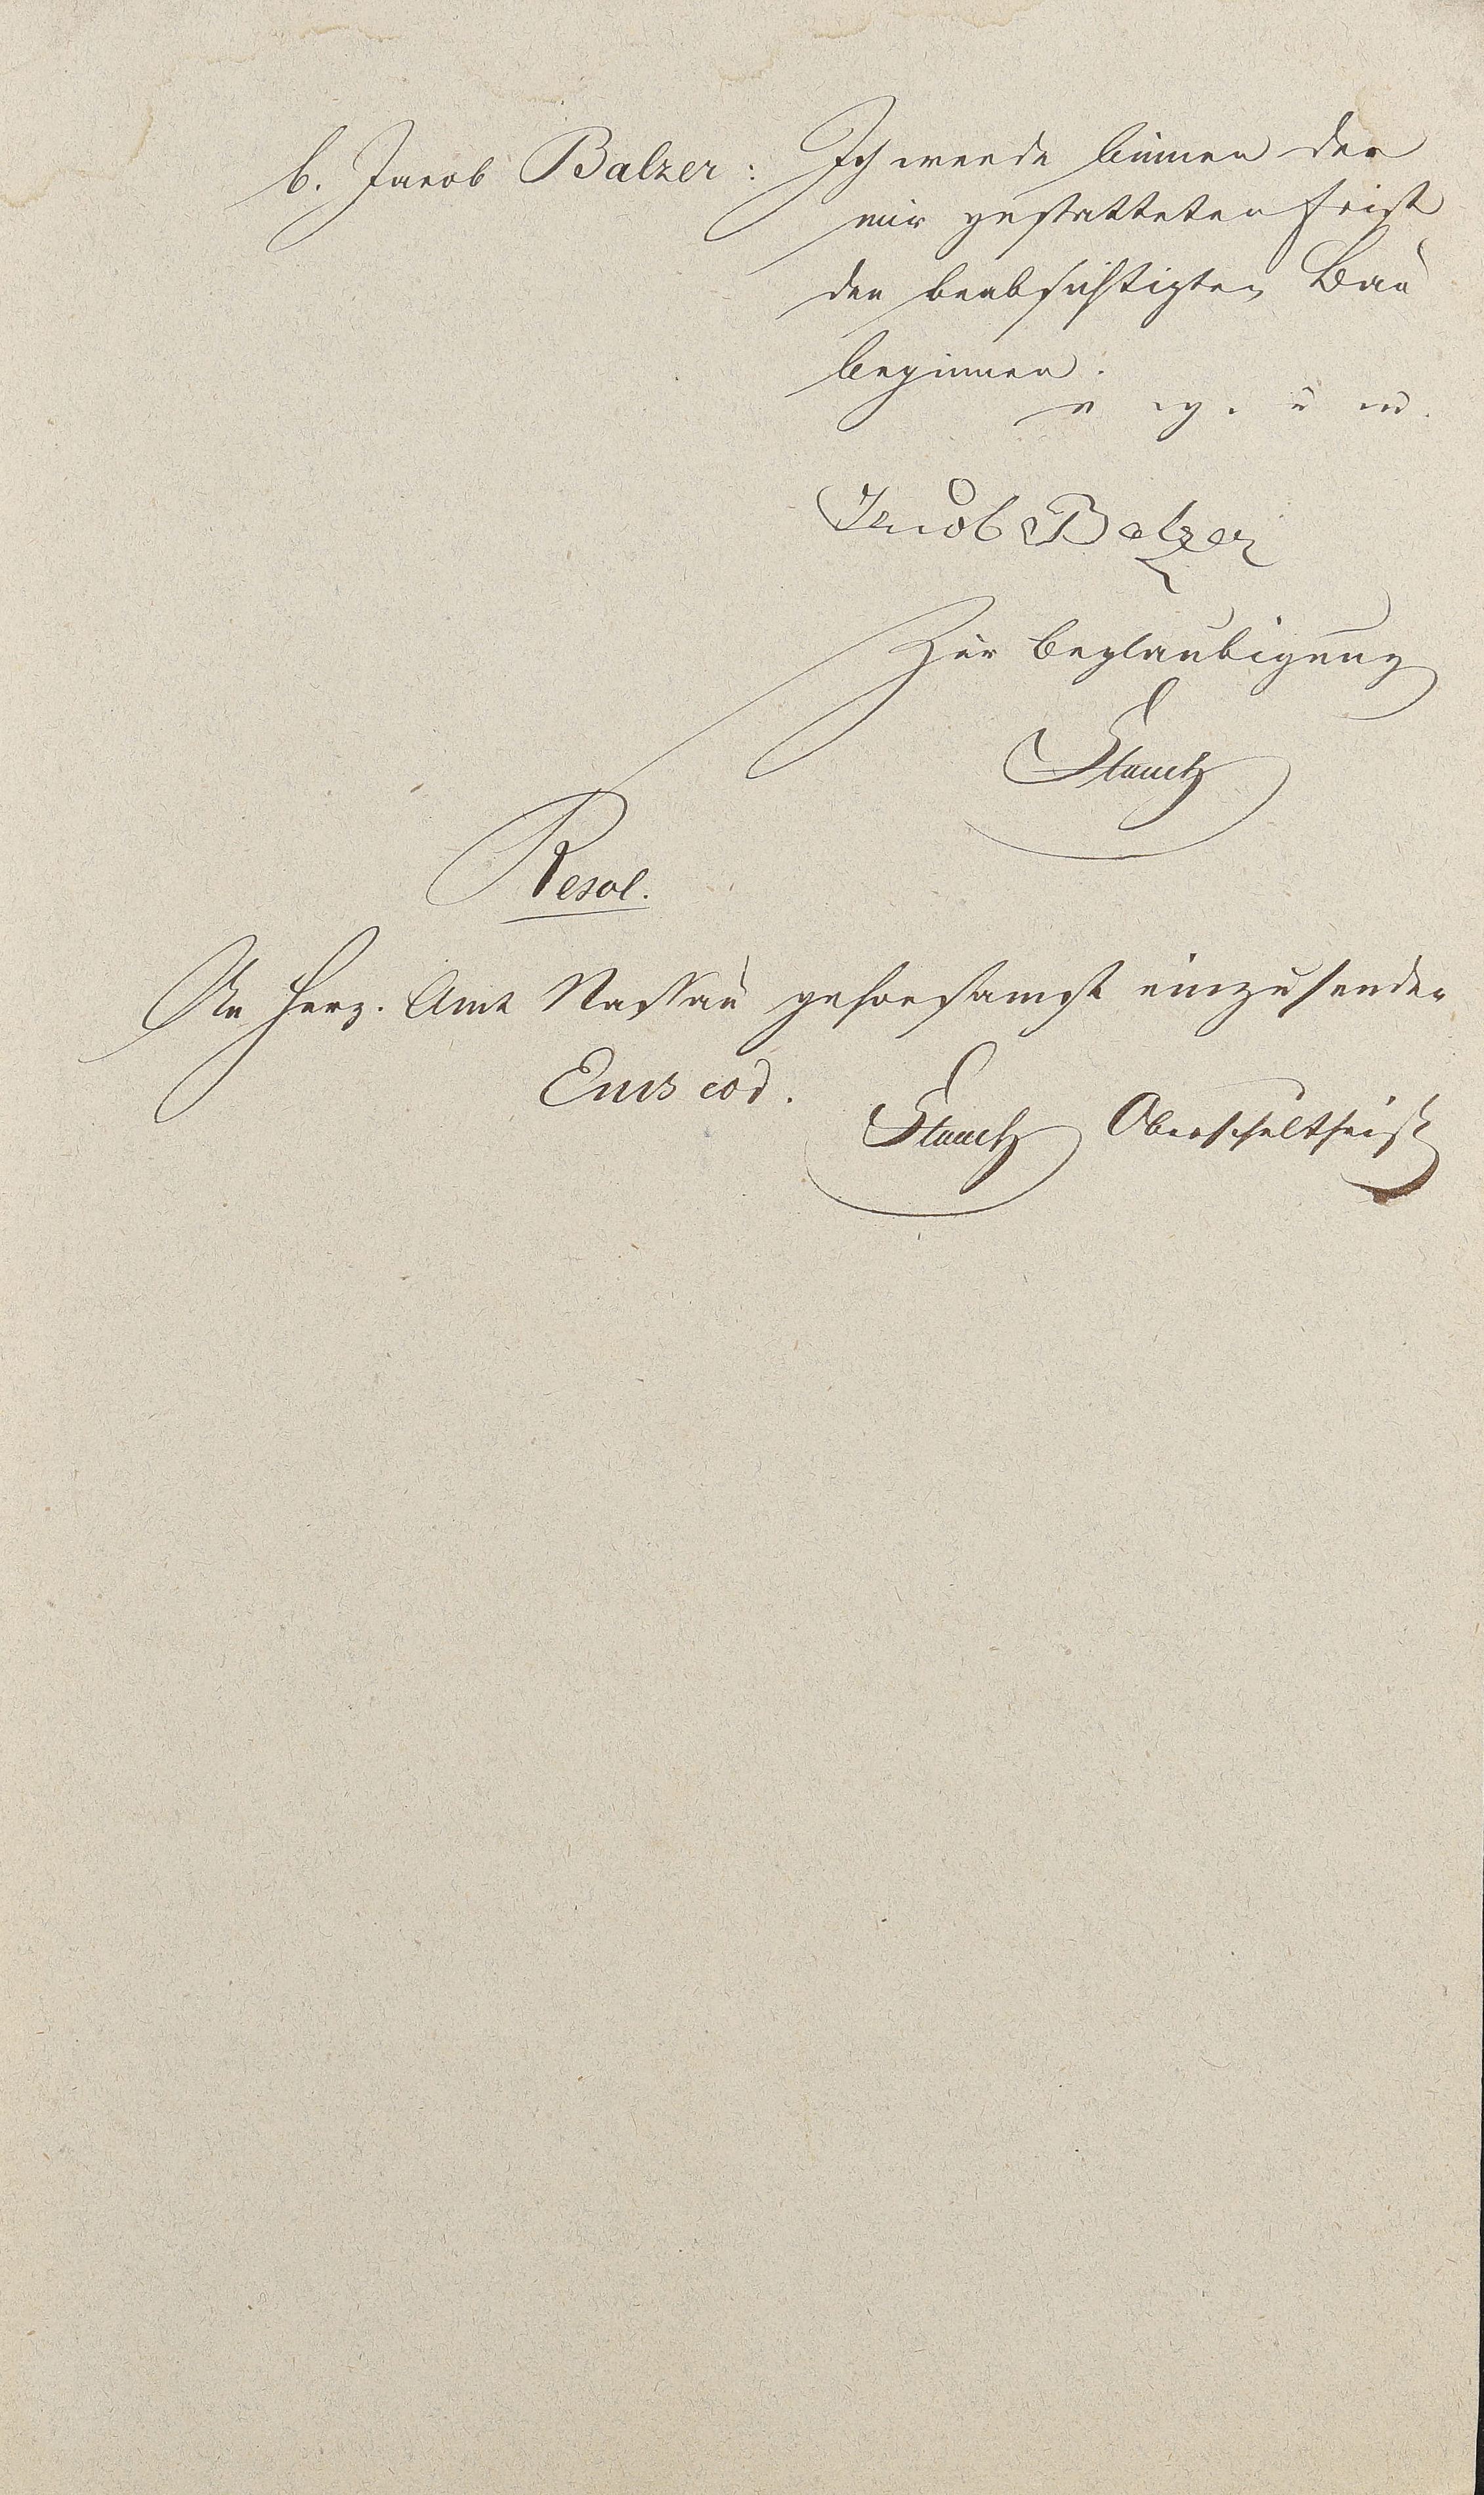 b. Jacob Balzer: Ich werde binnen der
mir gestatteten Frist
den beabsichtigten Bau
beginnen.
v. g. u.
Jacob Balzer
Zur Beglaubigung
Stauch
Resol.
An Herz. Amt Nassau gehorsamst einzusenden
Ems eod.
Stauch Oberschultheiß